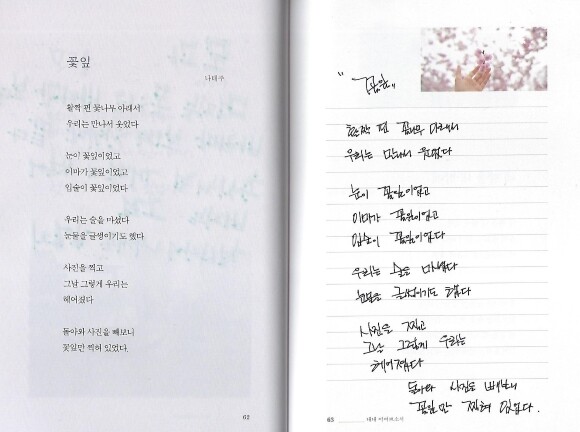 꽃잎
나태주
활짝 핀 꽃나무 아래서
우리는 만나서 웃었다
눈이 꽃잎이었고
이마가 꽃잎이었고
입술이 꽃잎이었다
우리는 술을 마셨다
눈물을 글썽이기도 했다
사진을 찍고
그날 그렇게 우리는
헤어졌다
돌아와 사진을 빼보니
꽃잎만 찍혀 있었다.
62
"꽃잎"
활짝 핀 꽃나무 아래서
우리는 만나서 웃었다
눈이 꽃잎이었고
이마가 꽃잎이었고
입술이 꽃잎이었다
우리는 술을 마셨다
눈물을 글썽이기도 했다
사진을 찍고
그날 그렇게 우리는
헤어졌다
돌아와 사진을 빼보니
꽃잎만 찍혀 있었다.
63